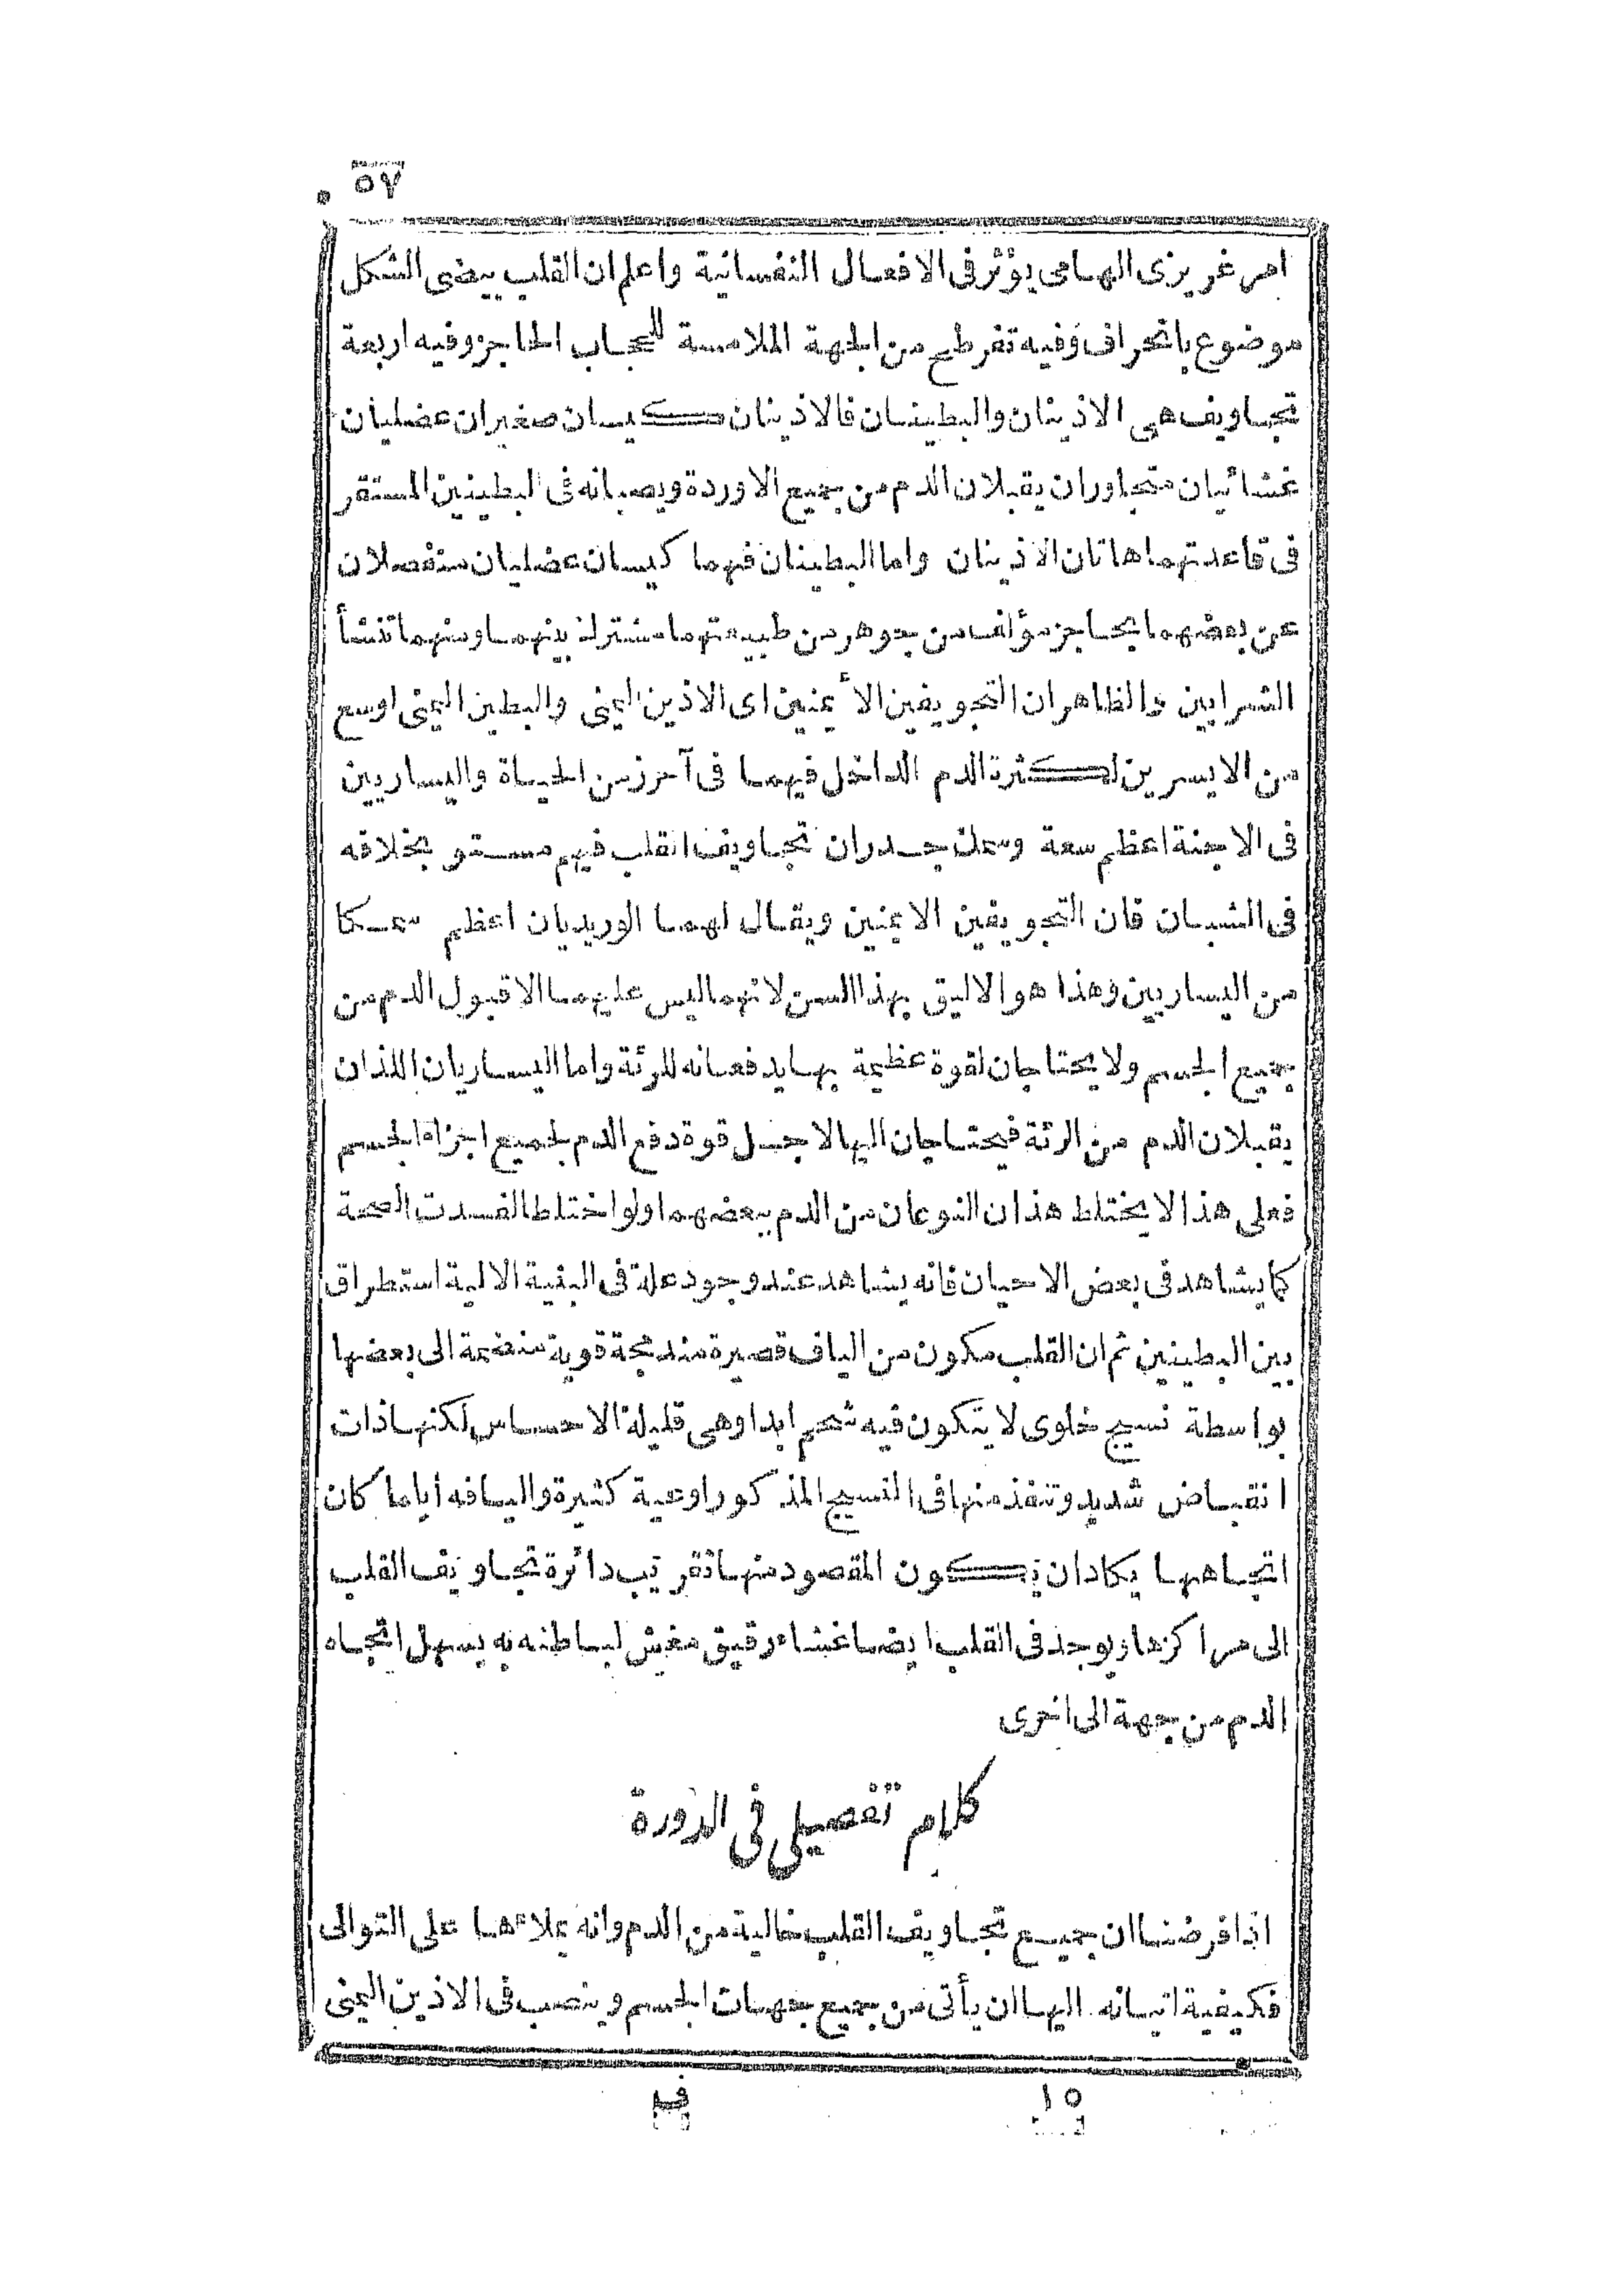 ٥٧
امر غريزى الهامى يؤثر فى الافعال النفسانية واعلم ان القلب بيضى الشكل
موضوع بانحراف وفيه تفرطح من الجهة الملامسة للحجاب الحاجز وفيه اربعة
تجاويف هى الاذينان والبطينان فالاذينان كيسان صغيران عضليان
غشائيان متجاوران يقبلان الدم من جميع الاوردة ويصبانه فى البطينين المستقر
فى قاعدتهما هاتان الاذينان واما البطينان فهما كيسان عضليان منفصلان
عن بعضهما بحاجز مؤلف من جوهر من طبيعتهما مشترك بينهما ومنهما تنشأ
الشرايين والظاهر ان التجويفين الأيمنين اى الاذين اليمنى والبطين اليمنى اوسع
من الايسرين لكثرة الدم الداخل فيهما فى آخر زمن الحياة واليساريين
فى الاجنة اعظم سعة وسمك جدران تجاويف القلب فيهم مستو بخلافه
فى الشبان فان التجويفين الايمنين ويقال لهما الوريديان اعظم سمكا
من اليساريين وهذا هو الاليق بهذا السن لانهما ليس عليهما الا قبول الدم من
جميع الجسم ولا يحتاجان لقوة عظيمة بها يدفعانه للرئة واما اليساريان اللذان
يقبلان الدم من الرئة فيحتاجان اليها لاجل قوة دفع الدم لجميع اجزاء الجسم
فعلى هذا لا يختلط هذان النوعان من الدم ببعضهما ولو اختلطا لفسدت الصحة
كما يشاهد فى بعض الاحيان فانه يشاهد عند وجود علة فى البنية الالية استطراق
بين البطينين ثم ان القلب مكون من الياف قصيرة مندمجة قوية منضمة الى بعضها
بواسطة نسيج خلوى لا يتكون فيه شحم ابدا وهى قليلة الاحساس لكنها ذات
انقباض شديد وتنفذ منها فى النسيج المذكور اوعية كثيرة واليافه أياما كان
اتجاهها يكاد ان يكون المقصود منها تقريب دائرة تجاويف القلب
الى مراكزها ويوجد فى القلب ايضا غشاء رقيق مغش لباطنه به يسهل اتجاه
الدم من جهة الى اخرى
كلام تفصيلى فى الدورة
اذا فرضنا ان جميع تجاويف القلب خالية من الدم وانه يملاءها على التوالى
فكيفية اتيانه اليها ان يأتى من جميع جهات الجسم وينصب فى الاذين اليمنى
١٥